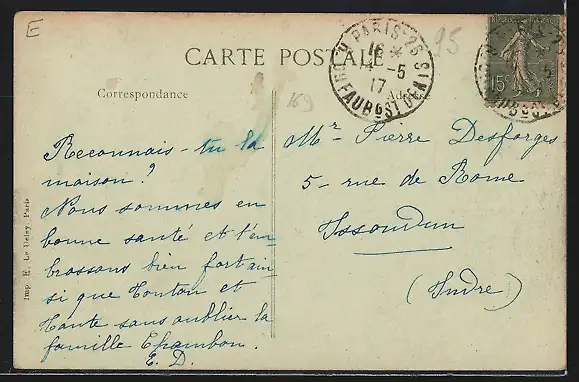 E
CARTE POSTALE
PARIS - 26
16 *
4 - 5
17
R. DU FAUBG ST DENIS
95
15c
169
Correspondance
Adresse
Reconnais-tu la
maison ?
Nous sommes en
bonne santé et t'em
brassons bien fort ain
si que Tonton et
Tante sans oublier la
famille Chambon.
E. D.
Mr Pierre Desforges
5 - rue de Rome
Issoudun
(Indre)
Imp. E. Le Deley, Paris